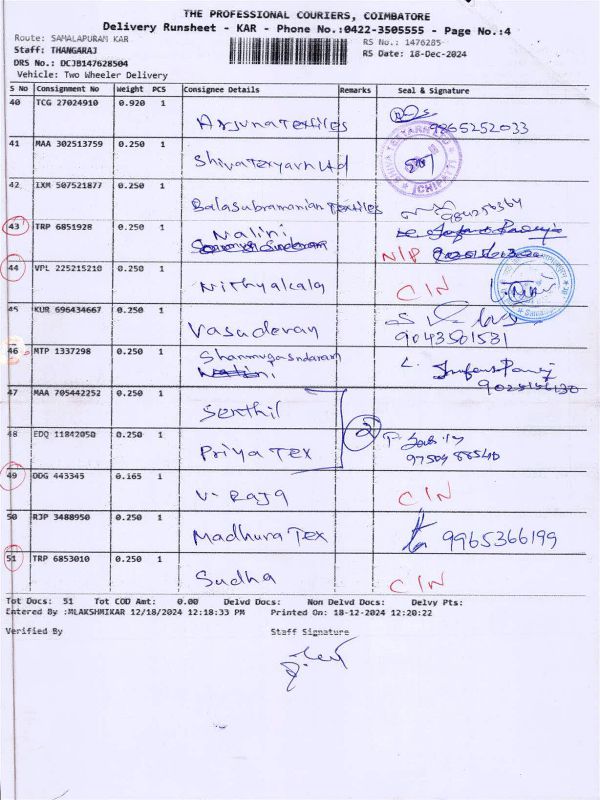 THE PROFESSIONAL COURIERS, COIMBATORE
Delivery Runsheet - KAR - Phone No.:0422-3505555 - Page No.:4
Route: SAMALAPURAM KAR
RS No.: 1476285
Staff: THANGARAJ
RS Date: 18-Dec-2024
DRS No.: DCJB147628504
Vehicle: Two Wheeler Delivery
S No Consignment No Weight PCS Consignee Details Remarks Seal & Signature
40 TCG 27024910 0.920 1 Arjuna Textiles 9865252033
41 MAA 302513759 0.250 1 Shiva Texyarn Ltd
42 IXM 507521877 0.250 1 Balasubramanian Textiles
43 TRP 6851928 0.250 1 Nalini N/P
44 VPL 225215210 0.250 1 Nithyalcala C/N
45 KUR 696434667 0.250 1 Vasudevan 9043501531
46 MTP 1337298 0.250 1 Shanmugasndaram
47 MAA 705442252 0.250 1 Senthil
48 EDQ 11842050 0.250 1 Priya Tex 2
49 DDG 443345 0.165 1 V. Raja C/N
50 RJP 3488950 0.250 1 Madhura Tex 9965366199
51 TRP 6853010 0.250 1 Sudha C/N
Tot Docs: 51 Tot COD Amt: 0.00 Delvd Docs: Non Delvd Docs: Delvy Pts:
Entered By :MLAKSHMIKAR 12/18/2024 12:18:33 PM Printed On: 18-12-2024 12:20:22
Verified By Staff Signature